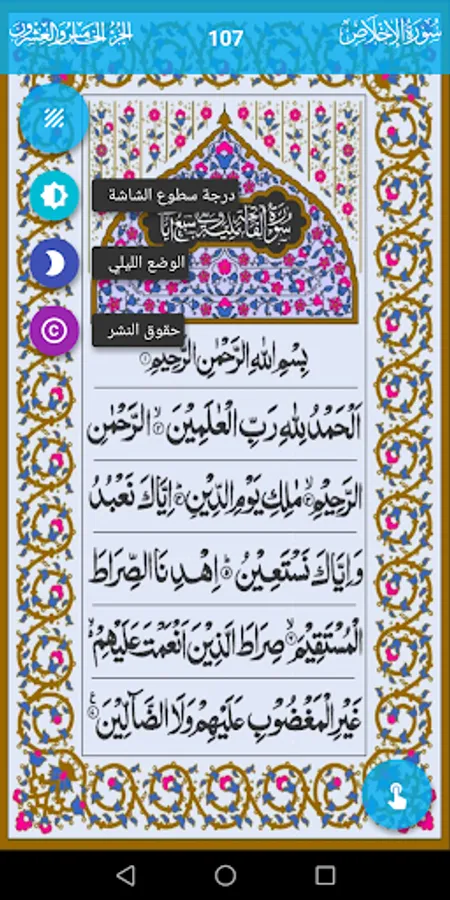 سُورَةُ الإِخْلَاصِ 107 الجزء الخامس والعشرون
درجة سطوع الشاشة
سورة الفاتحة
الوضع الليلي
حقوق النشر
بِسْمِ اللهِ الرَّحْمٰنِ الرَّحِيْمِ ۝۱
اَلْحَمْدُ لِلّٰهِ رَبِّ الْعٰلَمِيْنَ ۝۲ الرَّحْمٰنِ
الرَّحِيْمِ ۝۳ مٰلِكِ يَوْمِ الدِّيْنِ ۝۴ اِيَّاكَ نَعْبُدُ
وَاِيَّاكَ نَسْتَعِيْنُ ۝۵ اِهْدِنَا الصِّرَاطَ
الْمُسْتَقِيْمَ ۝۶ صِرَاطَ الَّذِيْنَ اَنْعَمْتَ عَلَيْهِمْ
غَيْرِ الْمَغْضُوْبِ عَلَيْهِمْ وَلَا الضَّآلِّيْنَ ۝۷